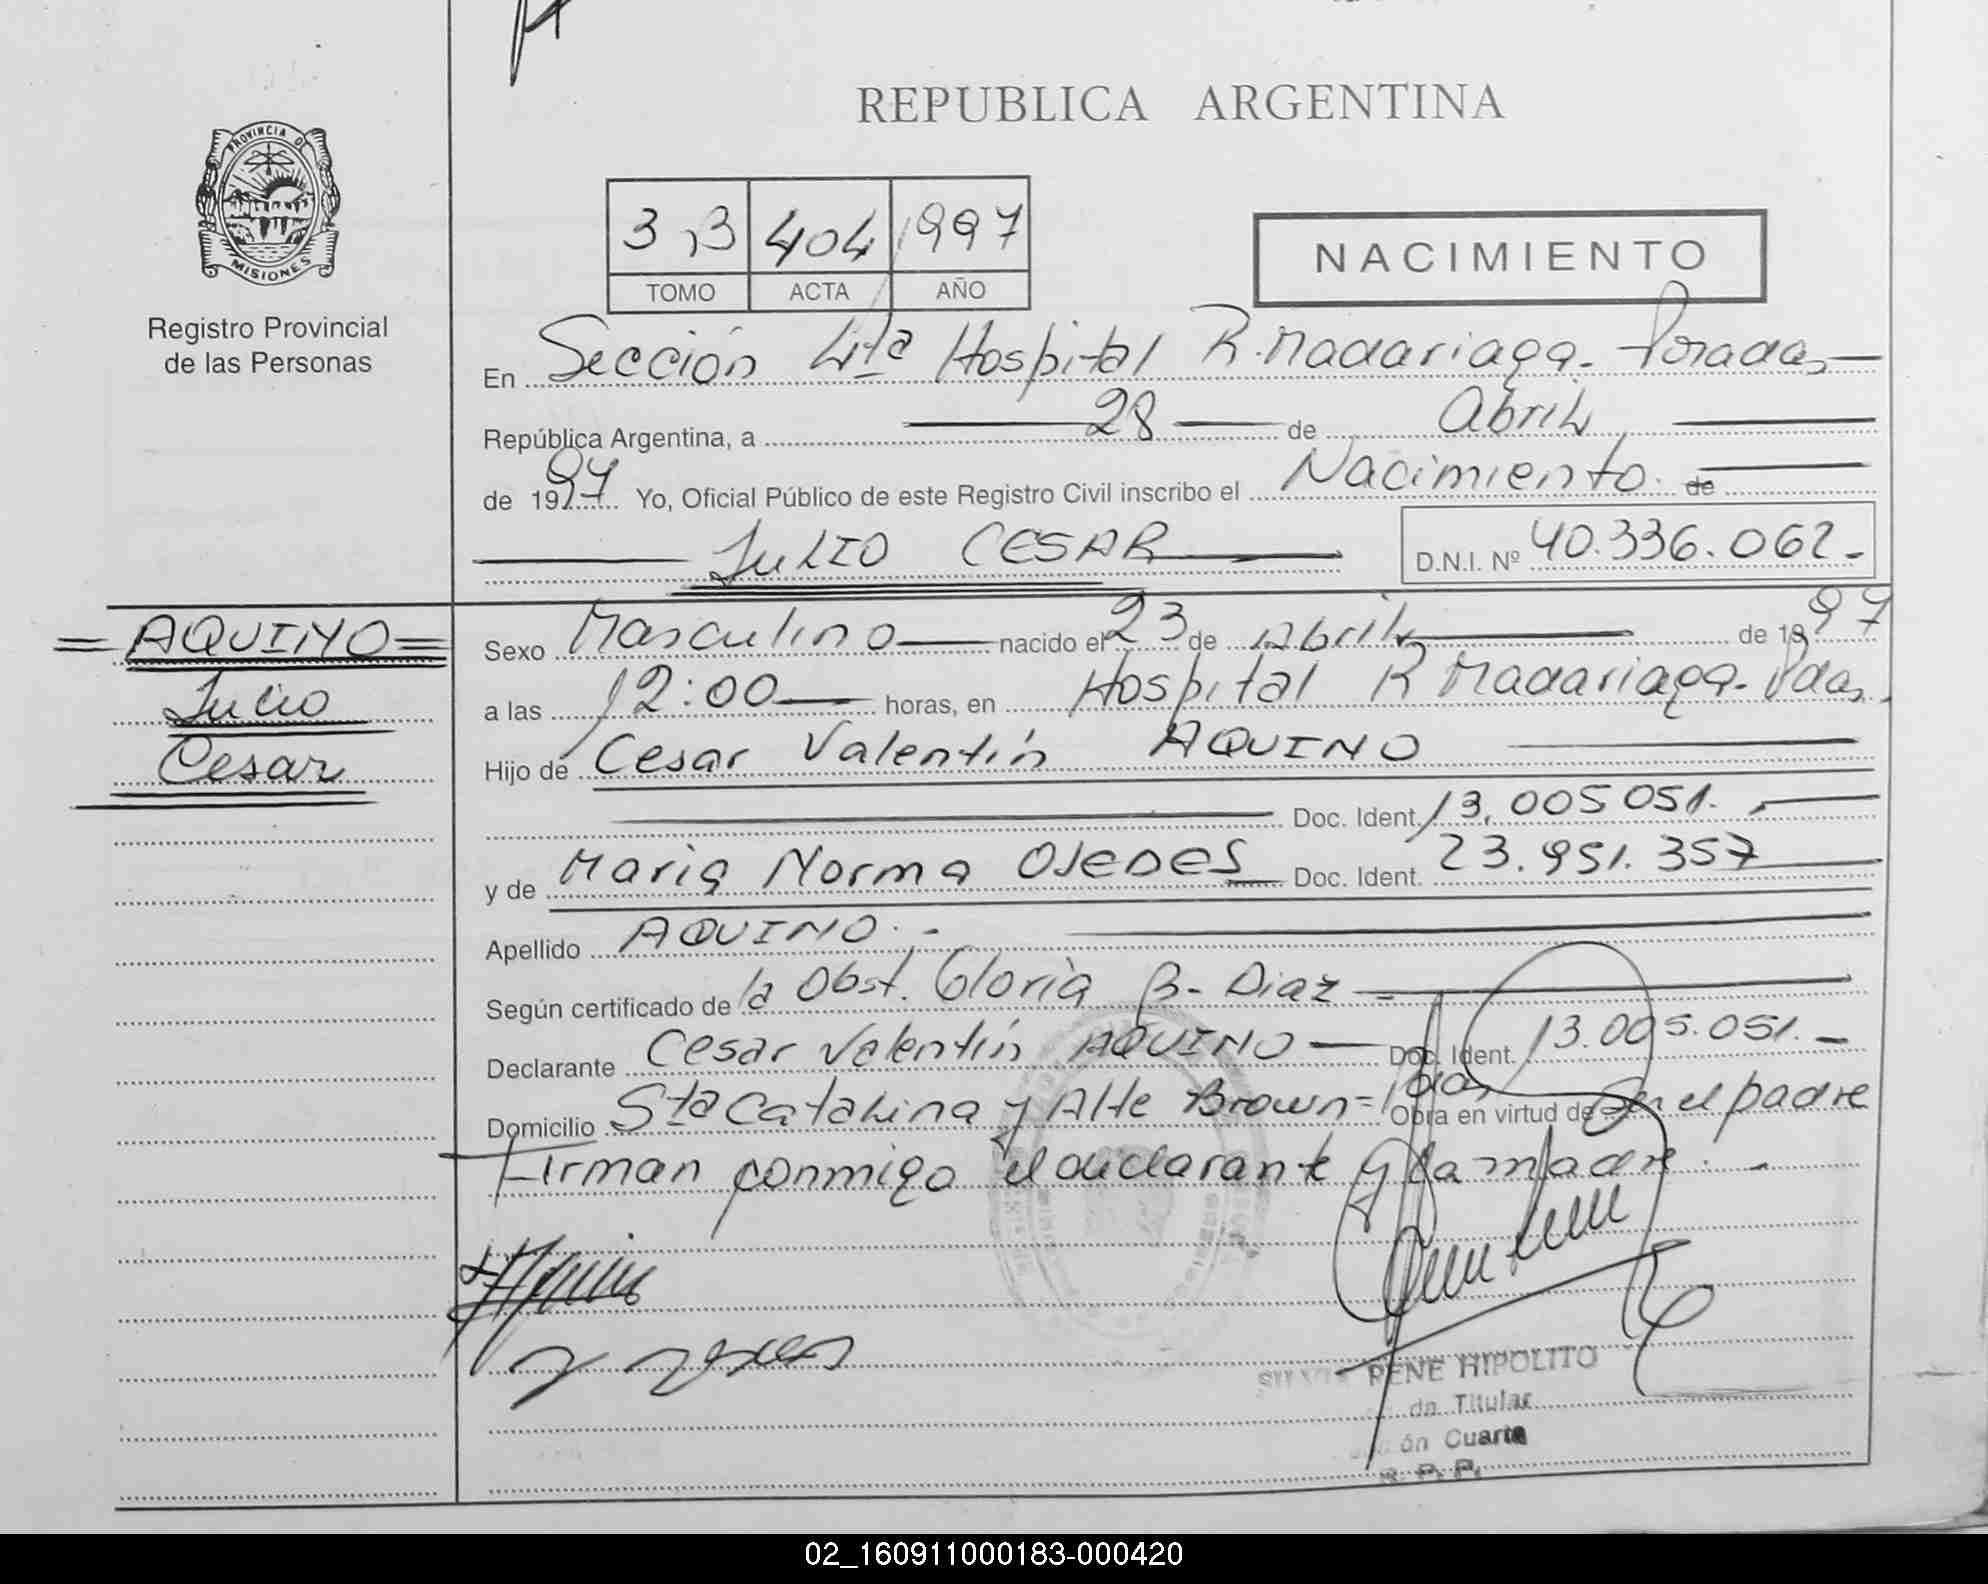 REPUBLICA ARGENTINA
PROVINCIA DE
MISIONES
Registro Provincial
de las Personas
404 1997
TOMO ACTA AÑO
NACIMIENTO
En Sección 4ta Hospital R. Madariaga. Posadas
República Argentina, a 28 de Abril
de 1997 Yo, Oficial Público de este Registro Civil inscribo el Nacimiento de
JULIO CESAR
D.N.I. Nº 40.336.062.-
=AQUINO=
Julio
Cesar
Sexo Masculino nacido el 23 de Abril de 1997
a las 12:00 horas, en Hospital R Madariaga. Pdas.
Hijo de Cesar Valentín AQUINO
Doc. Ident. 13.005051.
y de Maria Norma OJEDES Doc. Ident. 23.951.357
Apellido AQUINO.-
Según certificado de la Obst. Gloria B. Diaz -
Declarante Cesar Valentín AQUINO Doc. Ident. 13.005.051.-
Domicilio Sta Catalina y Alte Brown= Pdas Obra en virtud de Ser el padre
Firman conmigo el declarante y la madre.-
RENE HIPOLITO
Titular
Cuarta
R. P. P.
02_160911000183-000420